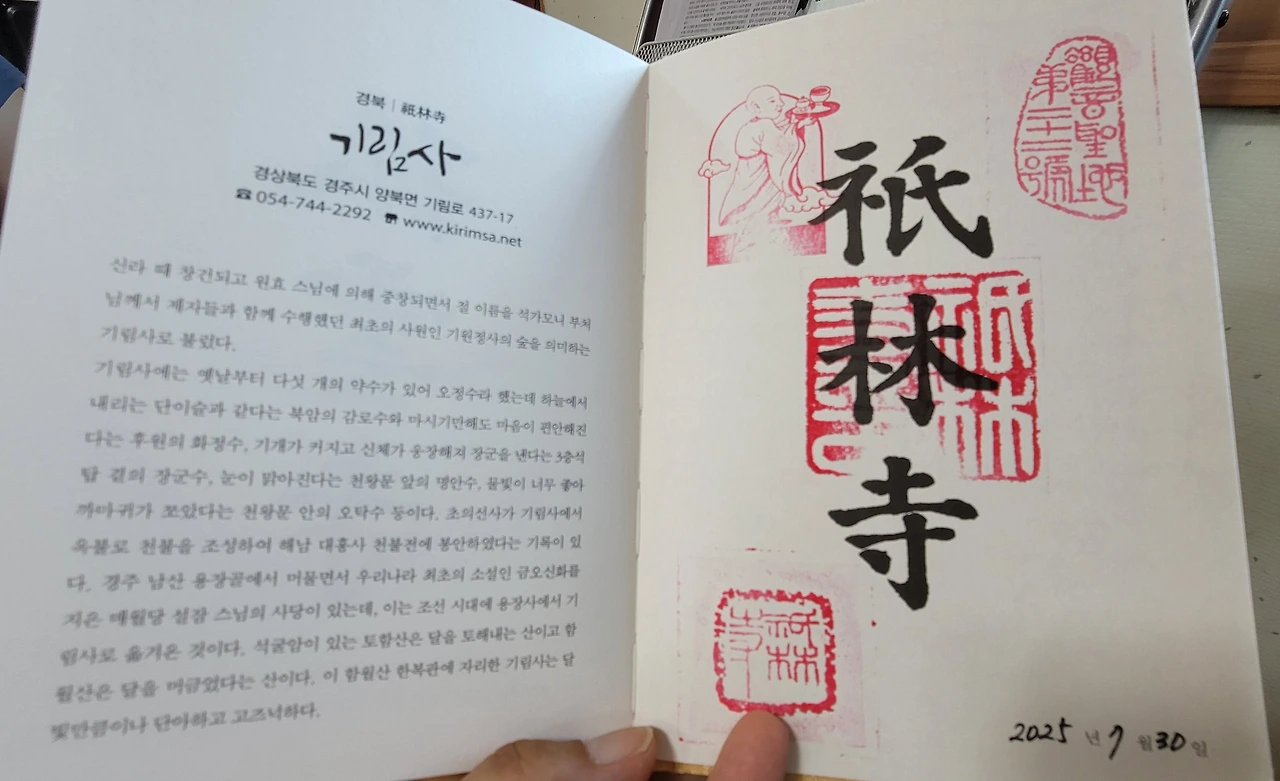 경북 | 祇林寺
기림사
경상북도 경주시 양북면 기림로 437-17
☎ 054-744-2292 www.kirimsa.net
신라 때 창건되고 원효 스님에 의해 중창되면서 절 이름을 석가모니 부처
님께서 제자들과 함께 수행했던 최초의 사원인 기원정사의 숲을 의미하는
기림사로 불렀다.
기림사에는 옛날부터 다섯 개의 약수가 있어 오정수라 했는데 하늘에서
내리는 단이슬과 같다는 북암의 감로수와 마시기만해도 마음이 편안해진
다는 후원의 화정수, 기개가 커지고 신체가 웅장해져 장군을 낸다는 3층석
탑 곁의 장군수, 눈이 맑아진다는 천왕문 앞의 명안수, 물빛이 너무 좋아
까마귀가 쪼았다는 천왕문 안의 오탁수 등이다. 초의선사가 기림사에서
옥불로 천불을 조성하여 해남 대흥사 천불전에 봉안하였다는 기록이 있
다. 경주 남산 용장골에서 머물면서 우리나라 최초의 소설인 금오신화를
지은 매월당 설잠 스님의 사당이 있는데, 이는 조선 시대에 용장사에서 기
림사로 옮겨온 것이다. 석굴암이 있는 토함산은 달을 토해내는 산이고 함
월산은 달을 머금었다는 산이다. 이 함월산 한복판에 자리한 기림사는 달
빛만큼이나 단아하고 고즈넉하다.
觀音聖地
第二十三號
祇林寺
祇林
祇林寺
2025 년 7 월 30 일